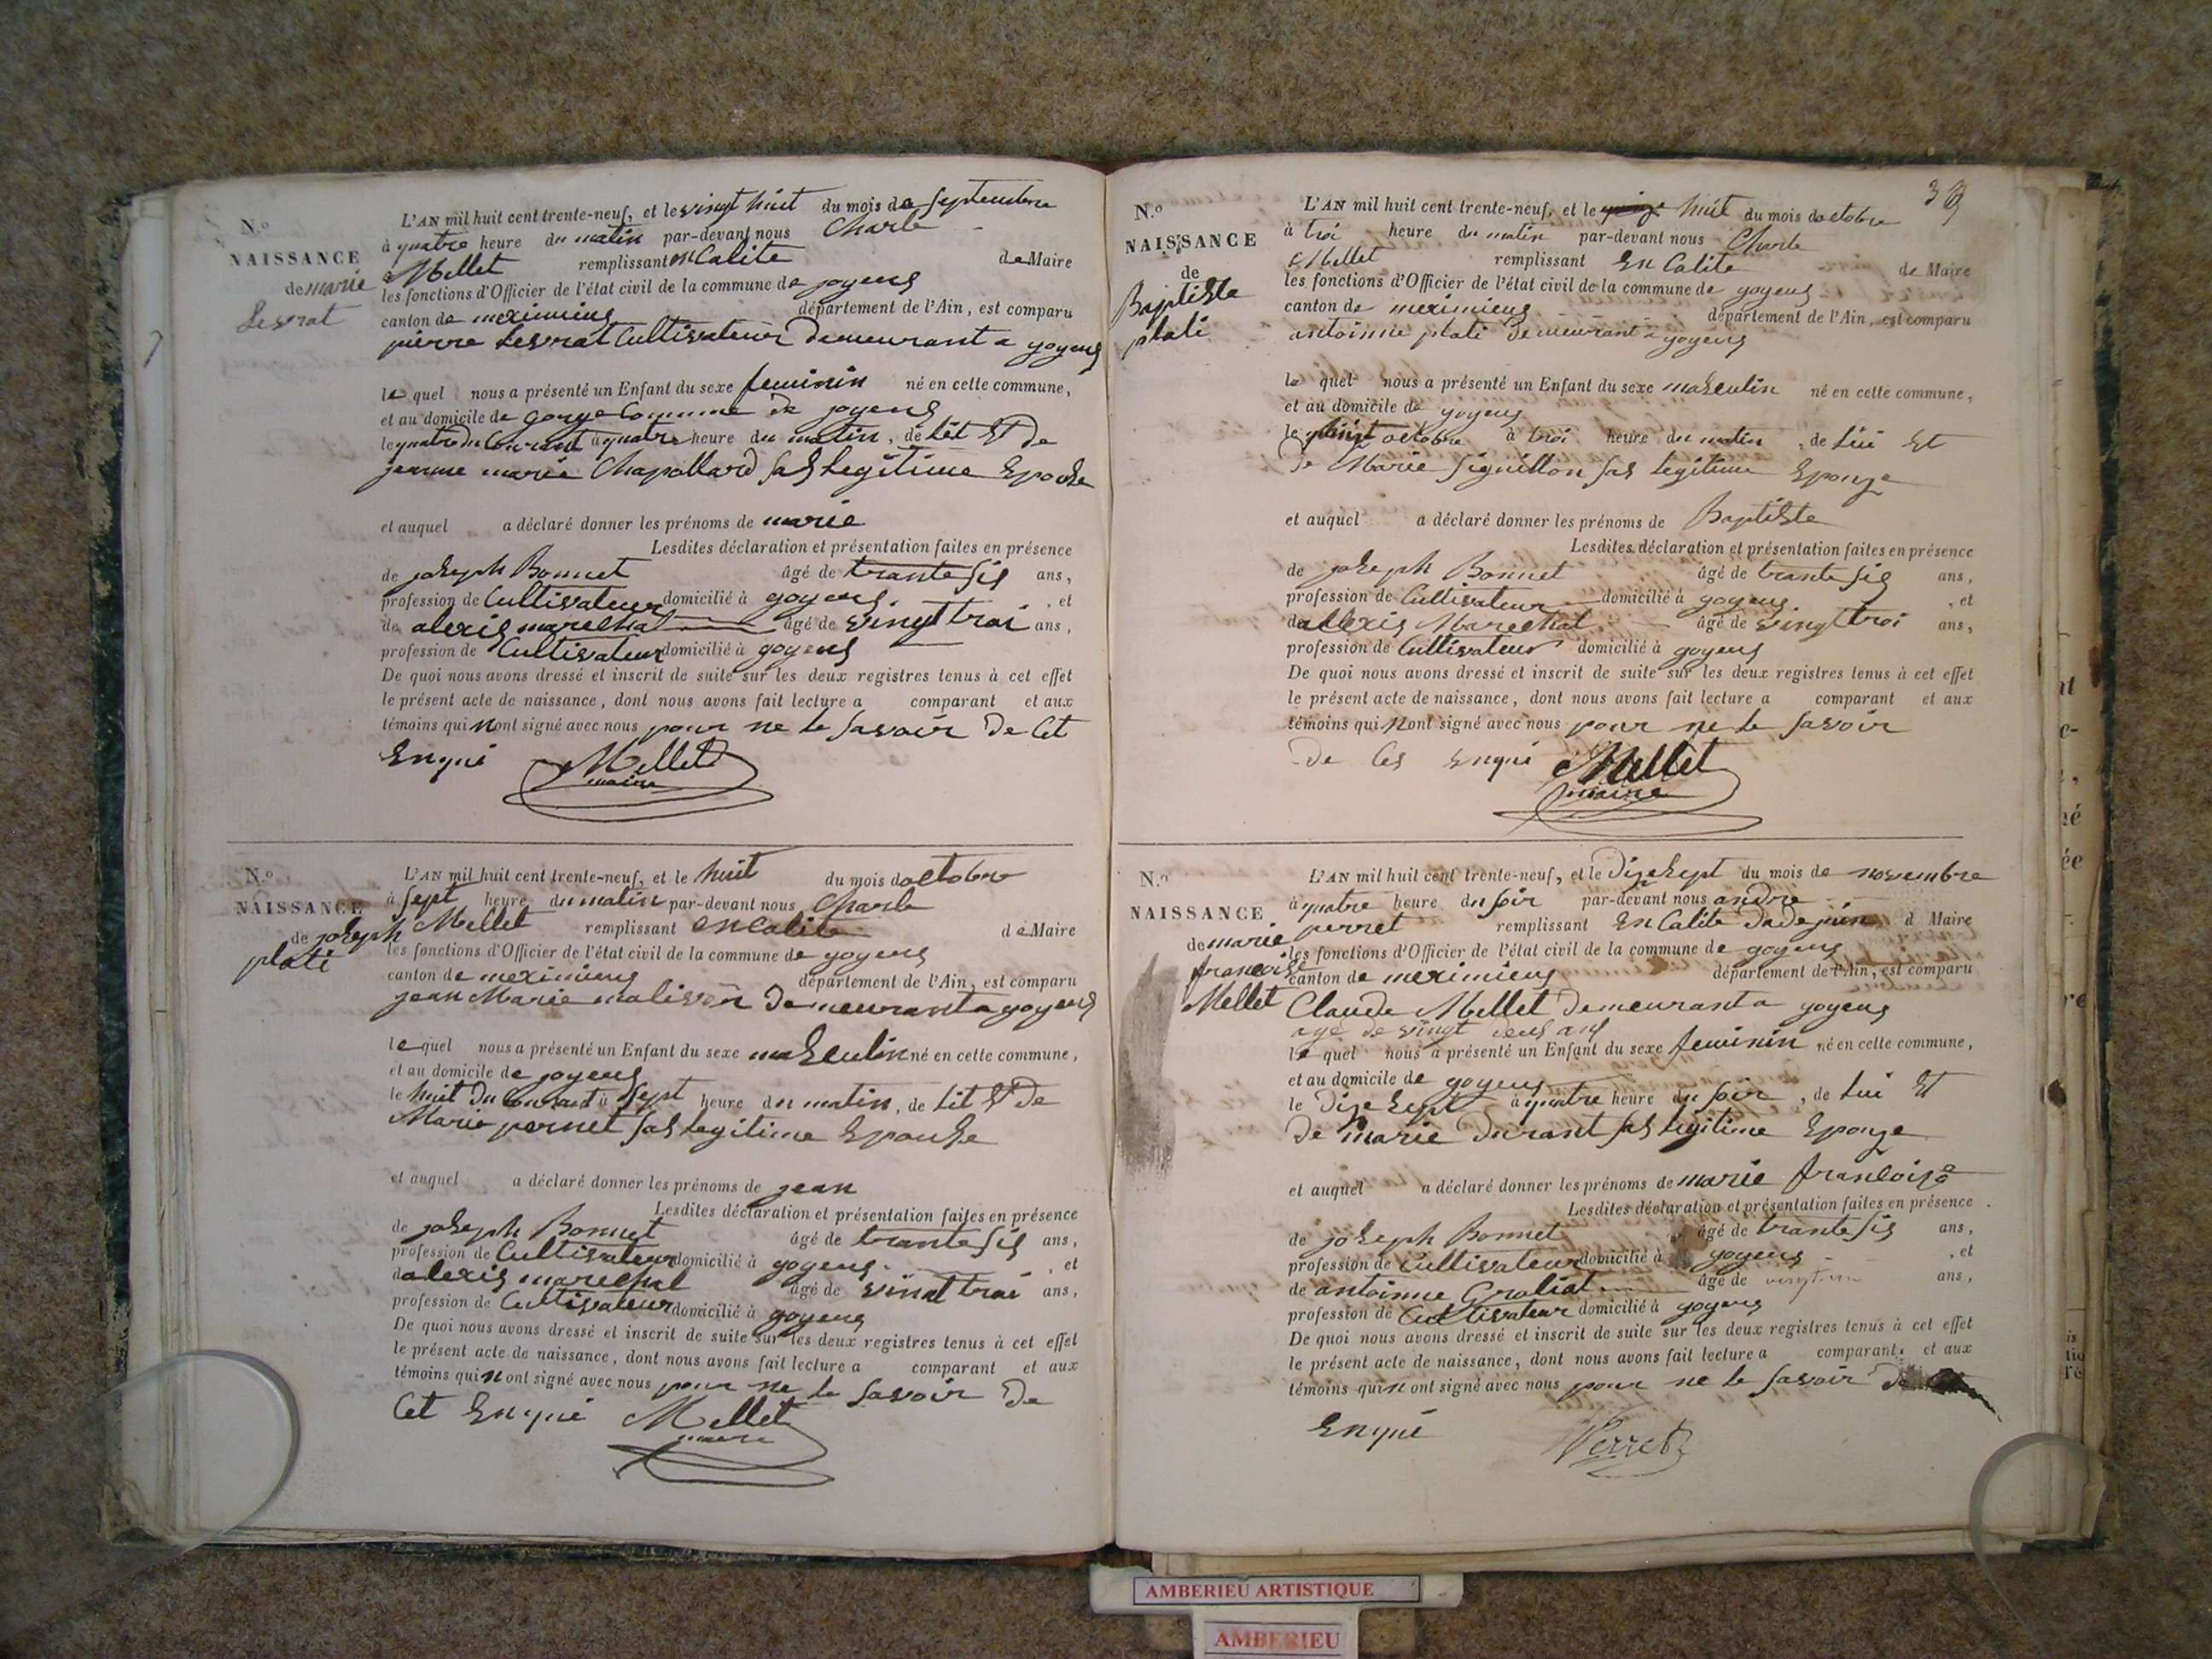 N.o
NAISSANCE
de marie
Lesvrat
L'AN mil huit cent trente-neuf, et le vingt huit du mois de septembre
à quatre heure du matin par-devant nous Charle
Mellet remplissant en Calite de Maire
les fonctions d'Officier de l'état civil de la commune de joyeus
canton de meximieus département de l'Ain, est comparu
pierre Lesvrat Cultivateur Demeurant a goyeus
le quel nous a présenté un Enfant du sexe feminin né en cette commune,
et au domicile de gorge Commune de joyeus
le quatre du Courant à quatre heure du matin, de Lit Et De
jeanne marie Chapollard sas Legitime Epouse
et auquel a déclaré donner les prénoms de marie
Lesdites déclaration et présentation faites en présence
de joseph Bonnet âgé de trante sis ans,
profession de Cultivateur domicilié à goyeus, et
de alexis marechal âgé de vingt troi ans,
profession de Cultivateur domicilié à goyeus
De quoi nous avons dressé et inscrit de suite sur les deux registres tenus à cet effet
le présent acte de naissance, dont nous avons fait lecture a comparant et aux
témoins qui nont signé avec nous pour ne le savoir De Cet
Enqui Mellet
maire
N.o
NAISSANCE
de joseph
plati
L'AN mil huit cent trente-neuf, et le huit du mois doctobre
à sept heure du matin par-devant nous Charle
Mellet remplissant en Calite de Maire
les fonctions d'Officier de l'état civil de la commune de goyeus
canton de meximieus département de l'Ain, est comparu
jean Marie Demeurant a goyeus
le quel nous a présenté un Enfant du sexe masculin né en cette commune,
et au domicile de joyeus
le huit Du Courant à sept heure du matin, de Lit Et De
Marie pernet sas Legitime Epouse
et auquel a déclaré donner les prénoms de jean
Lesdites déclaration et présentation faites en présence
de joseph Bonnet âgé de trante sis ans,
profession de Cultivateur domicilié à goyeus, et
dalexis marechal âgé de vingt troi ans,
profession de Cultivateur domicilié à goyeus
De quoi nous avons dressé et inscrit de suite sur les deux registres tenus à cet effet
le présent acte de naissance, dont nous avons fait lecture a comparant et aux
témoins qui nont signé avec nous pour ne le savoir De
Cet Enqui Mellet
maire
39
N.o
NAISSANCE
de
Baptiste
plati
L'AN mil huit cent trente-neuf, et le huit du mois doctobre
à troi heure du matin par-devant nous Charle
Mellet remplissant En Calite de Maire
les fonctions d'Officier de l'état civil de la commune de goyeus
canton de meximieus département de l'Ain, est comparu
antoinne plati Demeurant a goyeus
le quel nous a présenté un Enfant du sexe masculin né en cette commune,
et au domicile de goyeus
le octobre à troi heure du matin, de Lui Et
De Marie sas Legitime Epouze
et auquel a déclaré donner les prénoms de Baptiste
Lesdites déclaration et présentation faites en présence
de joseph Bonnet âgé de trante sis ans,
profession de Cultivateur domicilié à goyeus, et
dallexis Marechal âgé de vingt troi ans,
profession de Cultivateur domicilié à goyeus
De quoi nous avons dressé et inscrit de suite sur les deux registres tenus à cet effet
le présent acte de naissance, dont nous avons fait lecture a comparant et aux
témoins qui nont signé avec nous pour ne le savoir
De Ces Enqui Mellet
maire
N.o
NAISSANCE
de marie
francoise
Mellet
L'AN mil huit cent trente-neuf, et le Dize sept du mois de novembre
à quatre heure du soir par-devant nous andré
perret remplissant En Calite d Maire
les fonctions d'Officier de l'état civil de la commune de goyeus
canton de meximieus département de l'Ain, est comparu
Claude Mellet Demeurant a goyeus
age de vingt deus ans
le quel nous a présenté un Enfant du sexe feminin né en cette commune,
et au domicile de goyeus
le Dize sept à quatre heure du soir, de Lui Et
De marie Durant sas Legitime Epouze
et auquel a déclaré donner les prénoms de marie francoise
Lesdites déclaration et présentation faites en présence
de joseph Bonnet âgé de trante sis ans,
profession de Cultivateur domicilié à goyeus, et
de antoinne Groliat âgé de ans,
profession de Cultivateur domicilié à goyeus
De quoi nous avons dressé et inscrit de suite sur les deux registres tenus à cet effet
le présent acte de naissance, dont nous avons fait lecture a comparant et aux
témoins qui nont signé avec nous pour ne le savoir de
Enqui Perret
AMBERIEU ARTISTIQUE
AMBERIEU